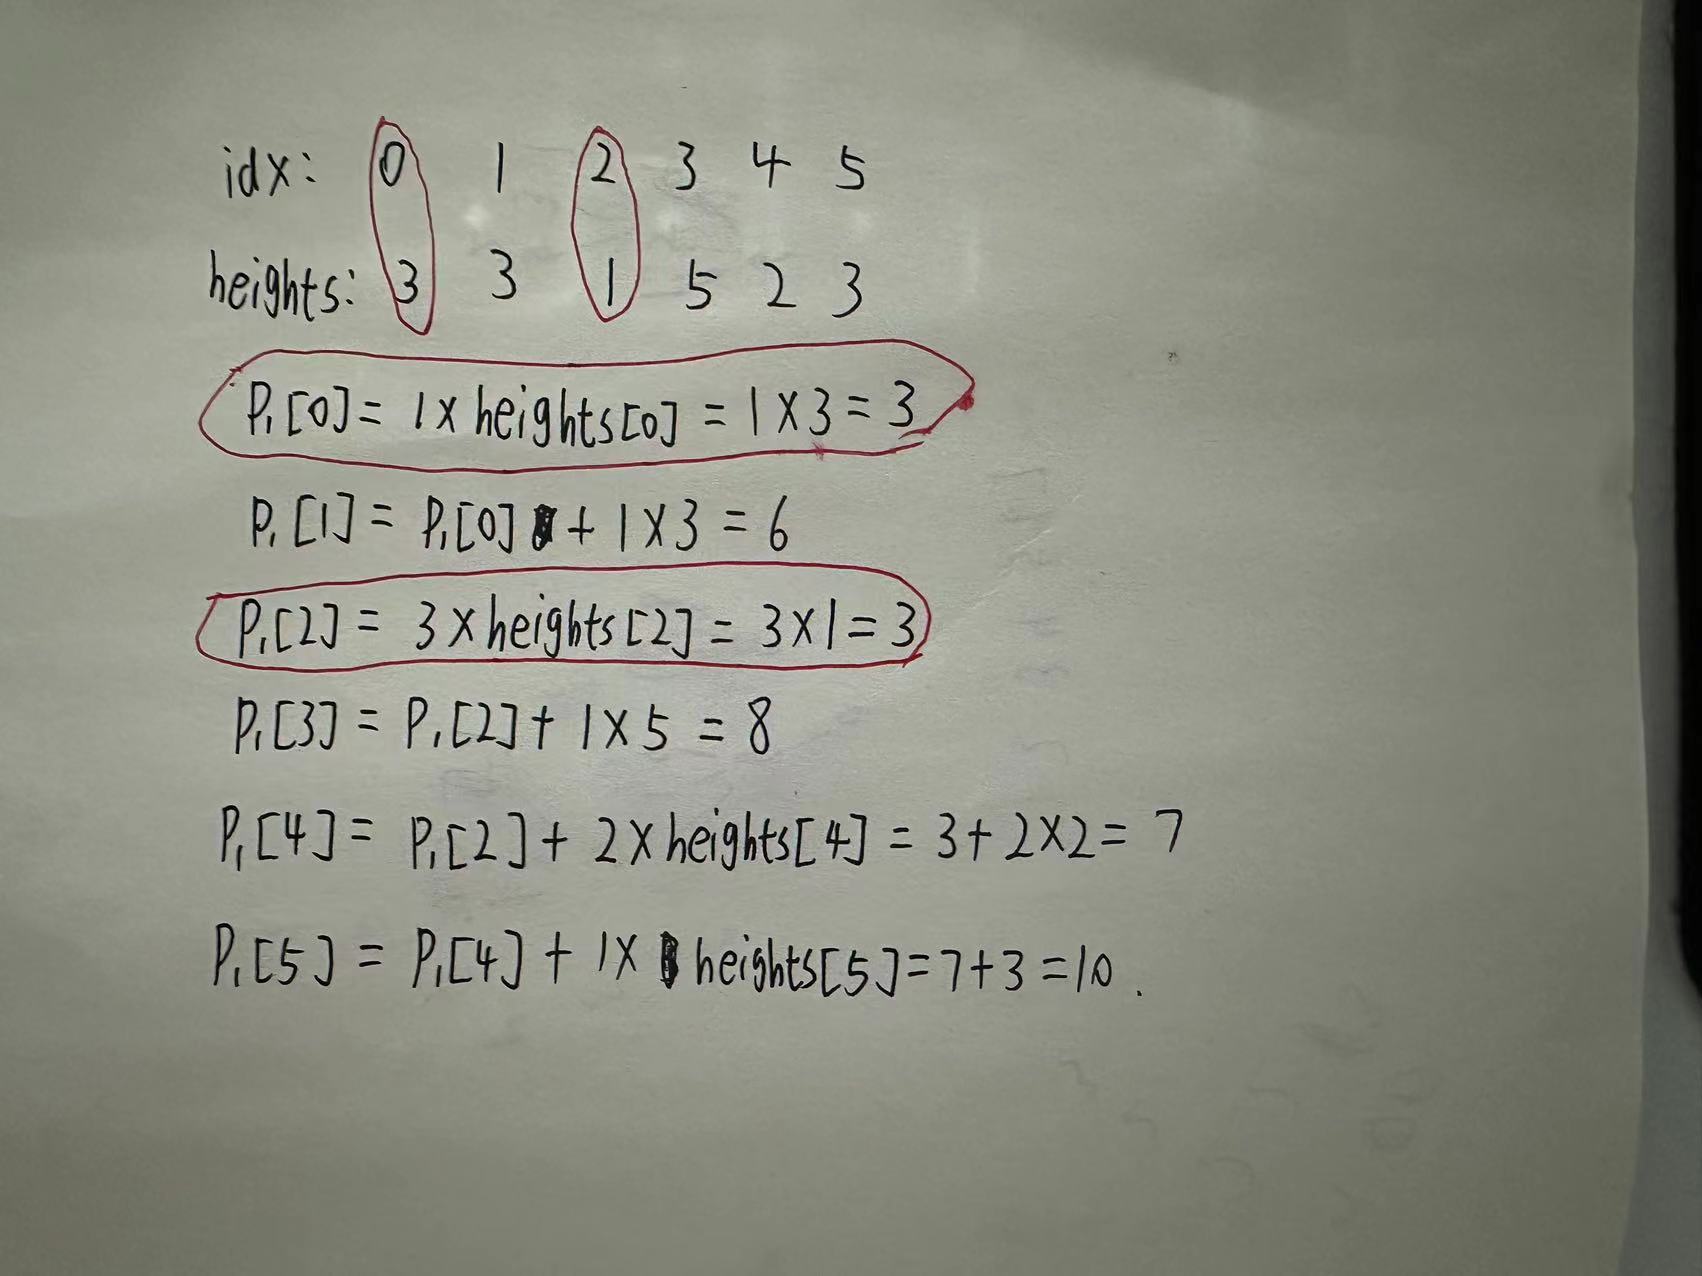 idx: 0 1 2 3 4 5
heights: 3 3 1 5 2 3
P₁[0] = 1 x heights[0] = 1 X 3 = 3
P₁[1] = P₁[0] + 1 X 3 = 6
P₁[2] = 3 x heights[2] = 3 X 1 = 3
P₁[3] = P₁[2] + 1 X 5 = 8
P₁[4] = P₁[2] + 2 X heights[4] = 3 + 2X2 = 7
P₁[5] = P₁[4] + 1X heights[5] = 7+3 = 10.